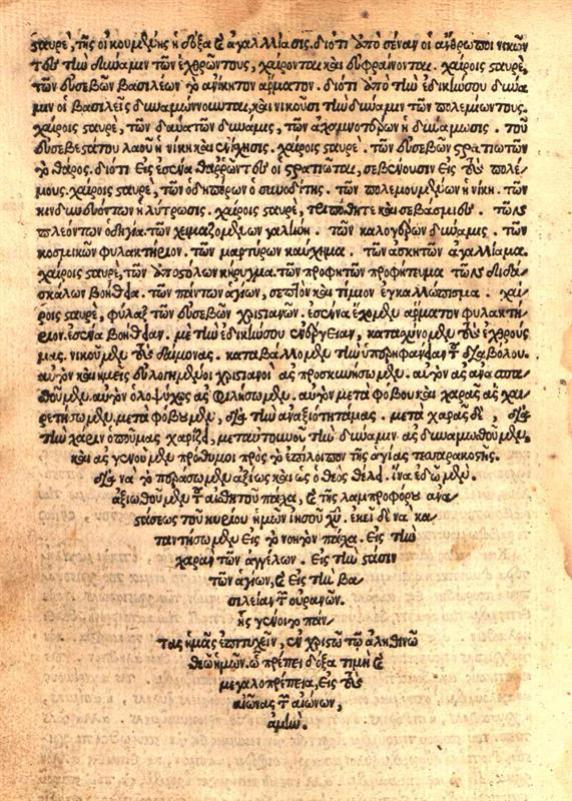 σταυρὲ, τῆς οἰκουμένης ἡ δόξα καὶ ἀγαλλίασις. διότι ὑπὸ σέναν οἱ ἄνθρωποι νικῶν
τὴν δύναμιν τῶν ἐχθρῶν τους, χαίρονται καὶ εὐφραίνονται. χαίροις σταυρὲ,
τῶν εὐσεβῶν βασιλέων τὸ ἀνίκητον ἅρματον. διότι ὑπὸ τὴν ἐδικήσου δύνα
μιν οἱ βασιλεῖς δυναμώνονται, καὶ νικοῦσι τὴν δύναμιν τῶν πολεμίων τους.
χαίροις σταυρὲ, τῶν δυνατῶν δύναμις, τῶν ἀχαμνοτέρων ἡ δυνάμωσις. τοῦ
εὐσεβεστάτου λαοῦ ἡ νίκη καὶ καύχησις. χαίροις σταυρὲ. τῶν εὐσεβῶν στρατιωτῶν
τὸ θάρος. διότι εἰς ἐσένα θαρρῶντες οἱ στρατιῶται, σεβαίνουσιν εἰς τοὺς πολέ/
μους. χαίροις σταυρὲ, τῶν ὁδηπόρων ὁ συνοδίτης. τῶν πολεμουμένων ἡ νίκη. τῶν
κινδυνευόντων ἡ λύτρωσις. χαίροις σταυρὲ, τριπόθητε καὶ σεβάσμιε. τῶν
πλεόντων ὁδηγία. τῶν χειμαζομένων γαλίνη. τῶν καλογέρων δύναμις. τῶν
κοσμικῶν φυλακτήριον. τῶν μαρτύρων καύχημα. τῶν ἀσκητῶν ἀγαλλίαμα.
χαίροις σταυρὲ, τῶν ἀποστόλων κήρυγμα. τῶν προφητῶν προφήτευμα. τῶν διδα/
σκάλων βοήθεια. τῶν πάντων ἁγίων, σεπτὸν καὶ τίμιον ἐγκαλλώπισμα. χαί/
ροις σταυρὲ, φύλαξ τῶν εὐσεβῶν χριστιανῶν. ἐσένα ἔχομεν ἅρματον φυλακτή/
ριον. ἐσένα βοήθειαν. μὲ τὴν ἐδικήσου ἐνέργειαν, καταχύνομεν τοὺς ἐχθρούς
μας. νικοῦμεν τοὺς δαίμονας. καταβάλλομεν τὴν ὑπερηφανείαν τοῦ διαβόλου.
αὐτὸν καὶ ἡμεῖς εὐλογημένοι χριστιανοὶ ἂς προσκυνήσωμεν. αὐτὸν ἂς ἀναπα/
θοῦμεν. αὐτὸν ὁλοψύχως ἂς φιλήσωμεν. αὐτὸν μετὰ φόβου καὶ χαρᾶς ἂς χαι/
ρετήσωμεν. μετὰ φόβου μὲν, διὰ τὴν ἀναξιότητάμας. μετὰ χαρᾶς δὲ, διὰ
τὴν χάριν ὁποῦ μας χαρίζει, μεταύτουνου τὴν δύναμιν ἂς δυναμωθοῦμεν,
καὶ ἂς γενοῦμεν πρόθυμοι πρὸς τὸ ἐπίλοιπον τῆς ἁγίας τεσσαρακοστῆς.
διὰ νὰ τὸ περάσωμεν ἀξίως καὶ ὡς ὁ θεὸς θέλει. ἵνα ἐδῶ μὲν.
ἀξιωθοῦμεν τοῦ αἰσθητοῦ πάσχα, καὶ τῆς λαμπροφόρου ἀνα/
στάσεως τοῦ κυρίου ἡμῶν ἰησοῦ χυ. ἐκεῖ δὲ νὰ κα/
ταντήσωμεν εἰς τὸ νοητὸν πάσχα. εἰς τὴν
χαρὰν τῶν ἀγγέλων. εἰς τὴν στάσιν
τῶν ἁγίων, καὶ εἰς τὴν βα/
σιλείαν τῶν οὐρανῶν.
ἧς γένοιτο πάν/
τας ἡμᾶς ἐπιτυχεῖν, ἐν χριστῷ τῷ ἀληθινῷ
θεῷ ἡμῶν. ᾧ πρέπει δόξα τιμὴ καὶ
μεγαλοπρέπεια, εἰς τοὺς
αἰῶνας τῶν αἰώνων,
ἀμήν.